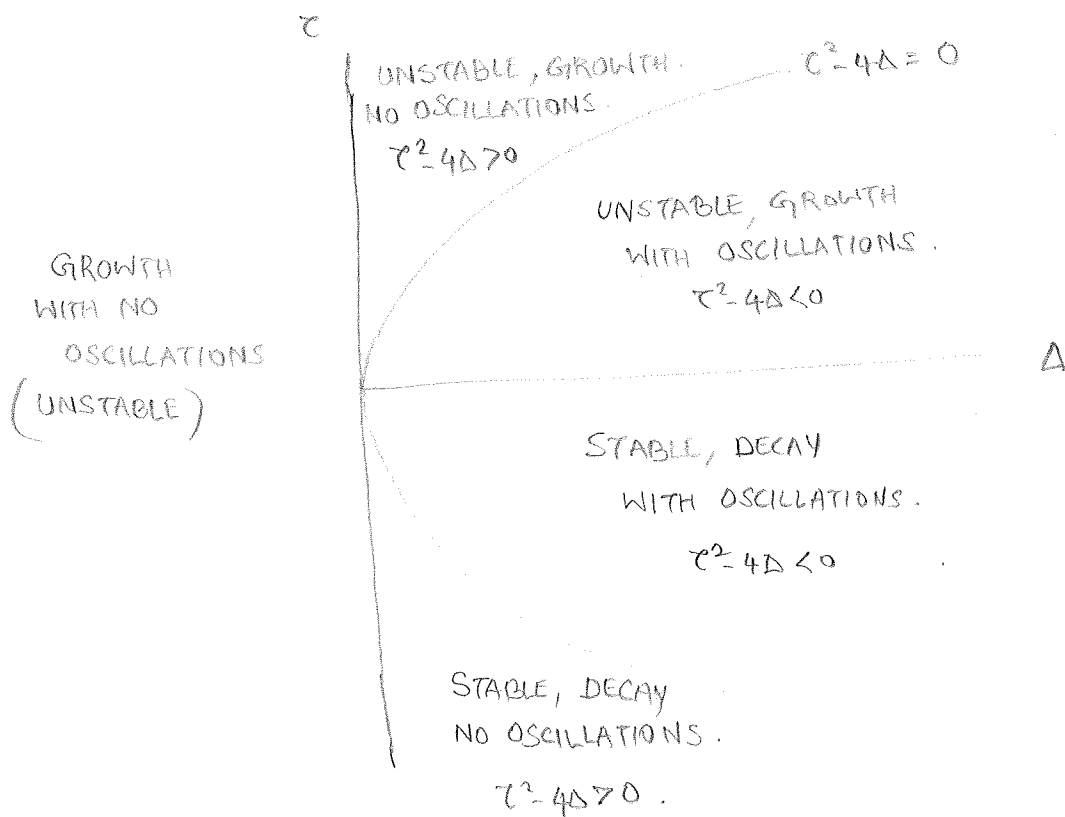 τ
UNSTABLE, GROWTH.
NO OSCILLATIONS.
τ²-4Δ>0
τ²-4Δ=0
UNSTABLE, GROWTH
WITH OSCILLATIONS.
τ²-4Δ<0
GROWTH
WITH NO
OSCILLATIONS
(UNSTABLE)
Δ
STABLE, DECAY
WITH OSCILLATIONS.
τ²-4Δ<0
STABLE, DECAY
NO OSCILLATIONS.
τ²-4Δ>0.